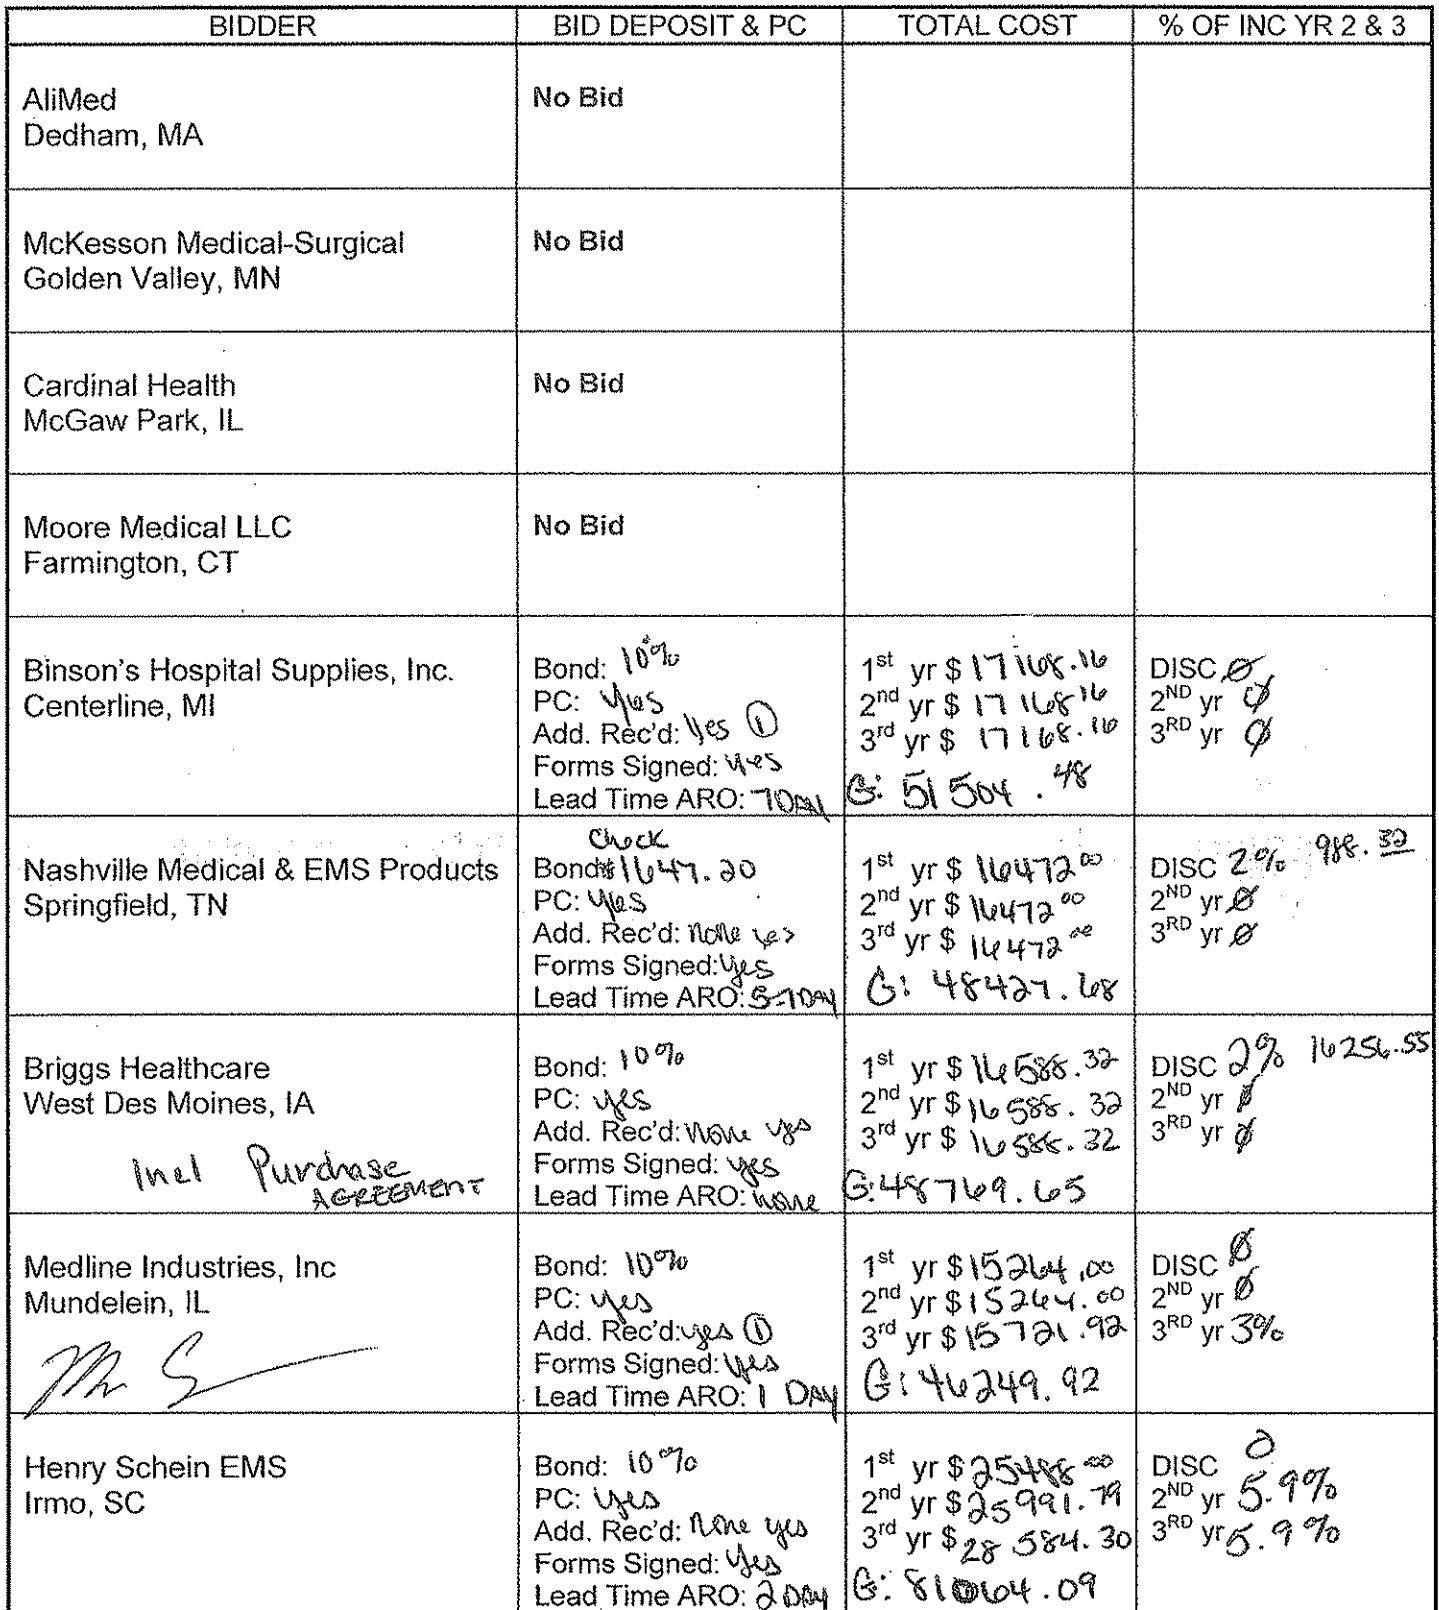 BIDDER BID DEPOSIT & PC TOTAL COST % OF INC YR 2 & 3
AliMed No Bid
Dedham, MA
McKesson Medical-Surgical No Bid
Golden Valley, MN
Cardinal Health No Bid
McGaw Park, IL
Moore Medical LLC No Bid
Farmington, CT
Binson's Hospital Supplies, Inc.
Centerline, MI
Bond: 10%
PC: yes
Add. Rec'd: yes ①
Forms Signed: yes
Lead Time ARO: 7 DAY
1st yr $ 17168.16
2nd yr $ 17168 16
3rd yr $ 17168.16
G: 51504.48
DISC Ø
2ND yr Ø
3RD yr Ø
Nashville Medical & EMS Products
Springfield, TN
Check
Bond: $1647.20
PC: yes
Add. Rec'd: none yes
Forms Signed: yes
Lead Time ARO: 5-7 DAY
1st yr $ 16472 00
2nd yr $ 16472 00
3rd yr $ 16472 00
G: 48427.68
DISC 2% 988.32
2ND yr Ø
3RD yr Ø
Briggs Healthcare
West Des Moines, IA
Incl Purchase
AGREEMENT
Bond: 10%
PC: yes
Add. Rec'd: none yes
Forms Signed: yes
Lead Time ARO: none
1st yr $ 16588.32
2nd yr $ 16588.32
3rd yr $ 16588.32
G: 48769.65
DISC 2% 16256.55
2ND yr Ø
3RD yr Ø
Medline Industries, Inc
Mundelein, IL
Bond: 10%
PC: yes
Add. Rec'd: yes ①
Forms Signed: yes
Lead Time ARO: 1 DAY
1st yr $ 15264.00
2nd yr $ 15264.00
3rd yr $ 15721.92
G: 46249.92
DISC Ø
2ND yr Ø
3RD yr 3%
Henry Schein EMS
Irmo, SC
Bond: 10%
PC: yes
Add. Rec'd: none yes
Forms Signed: yes
Lead Time ARO: 2 DAY
1st yr $ 25488 00
2nd yr $ 25991.79
3rd yr $ 28584.30
G: 81064.09
DISC 0
2ND yr 5.9%
3RD yr 5.9%